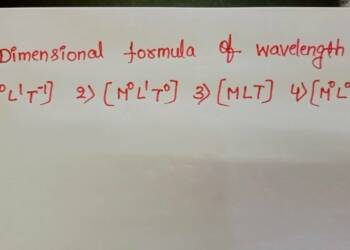 Dimensional formula of wavelength
⁰L¹T⁻¹] 2) [M⁰L¹T⁰] 3) [MLT] 4) [M⁰L⁰